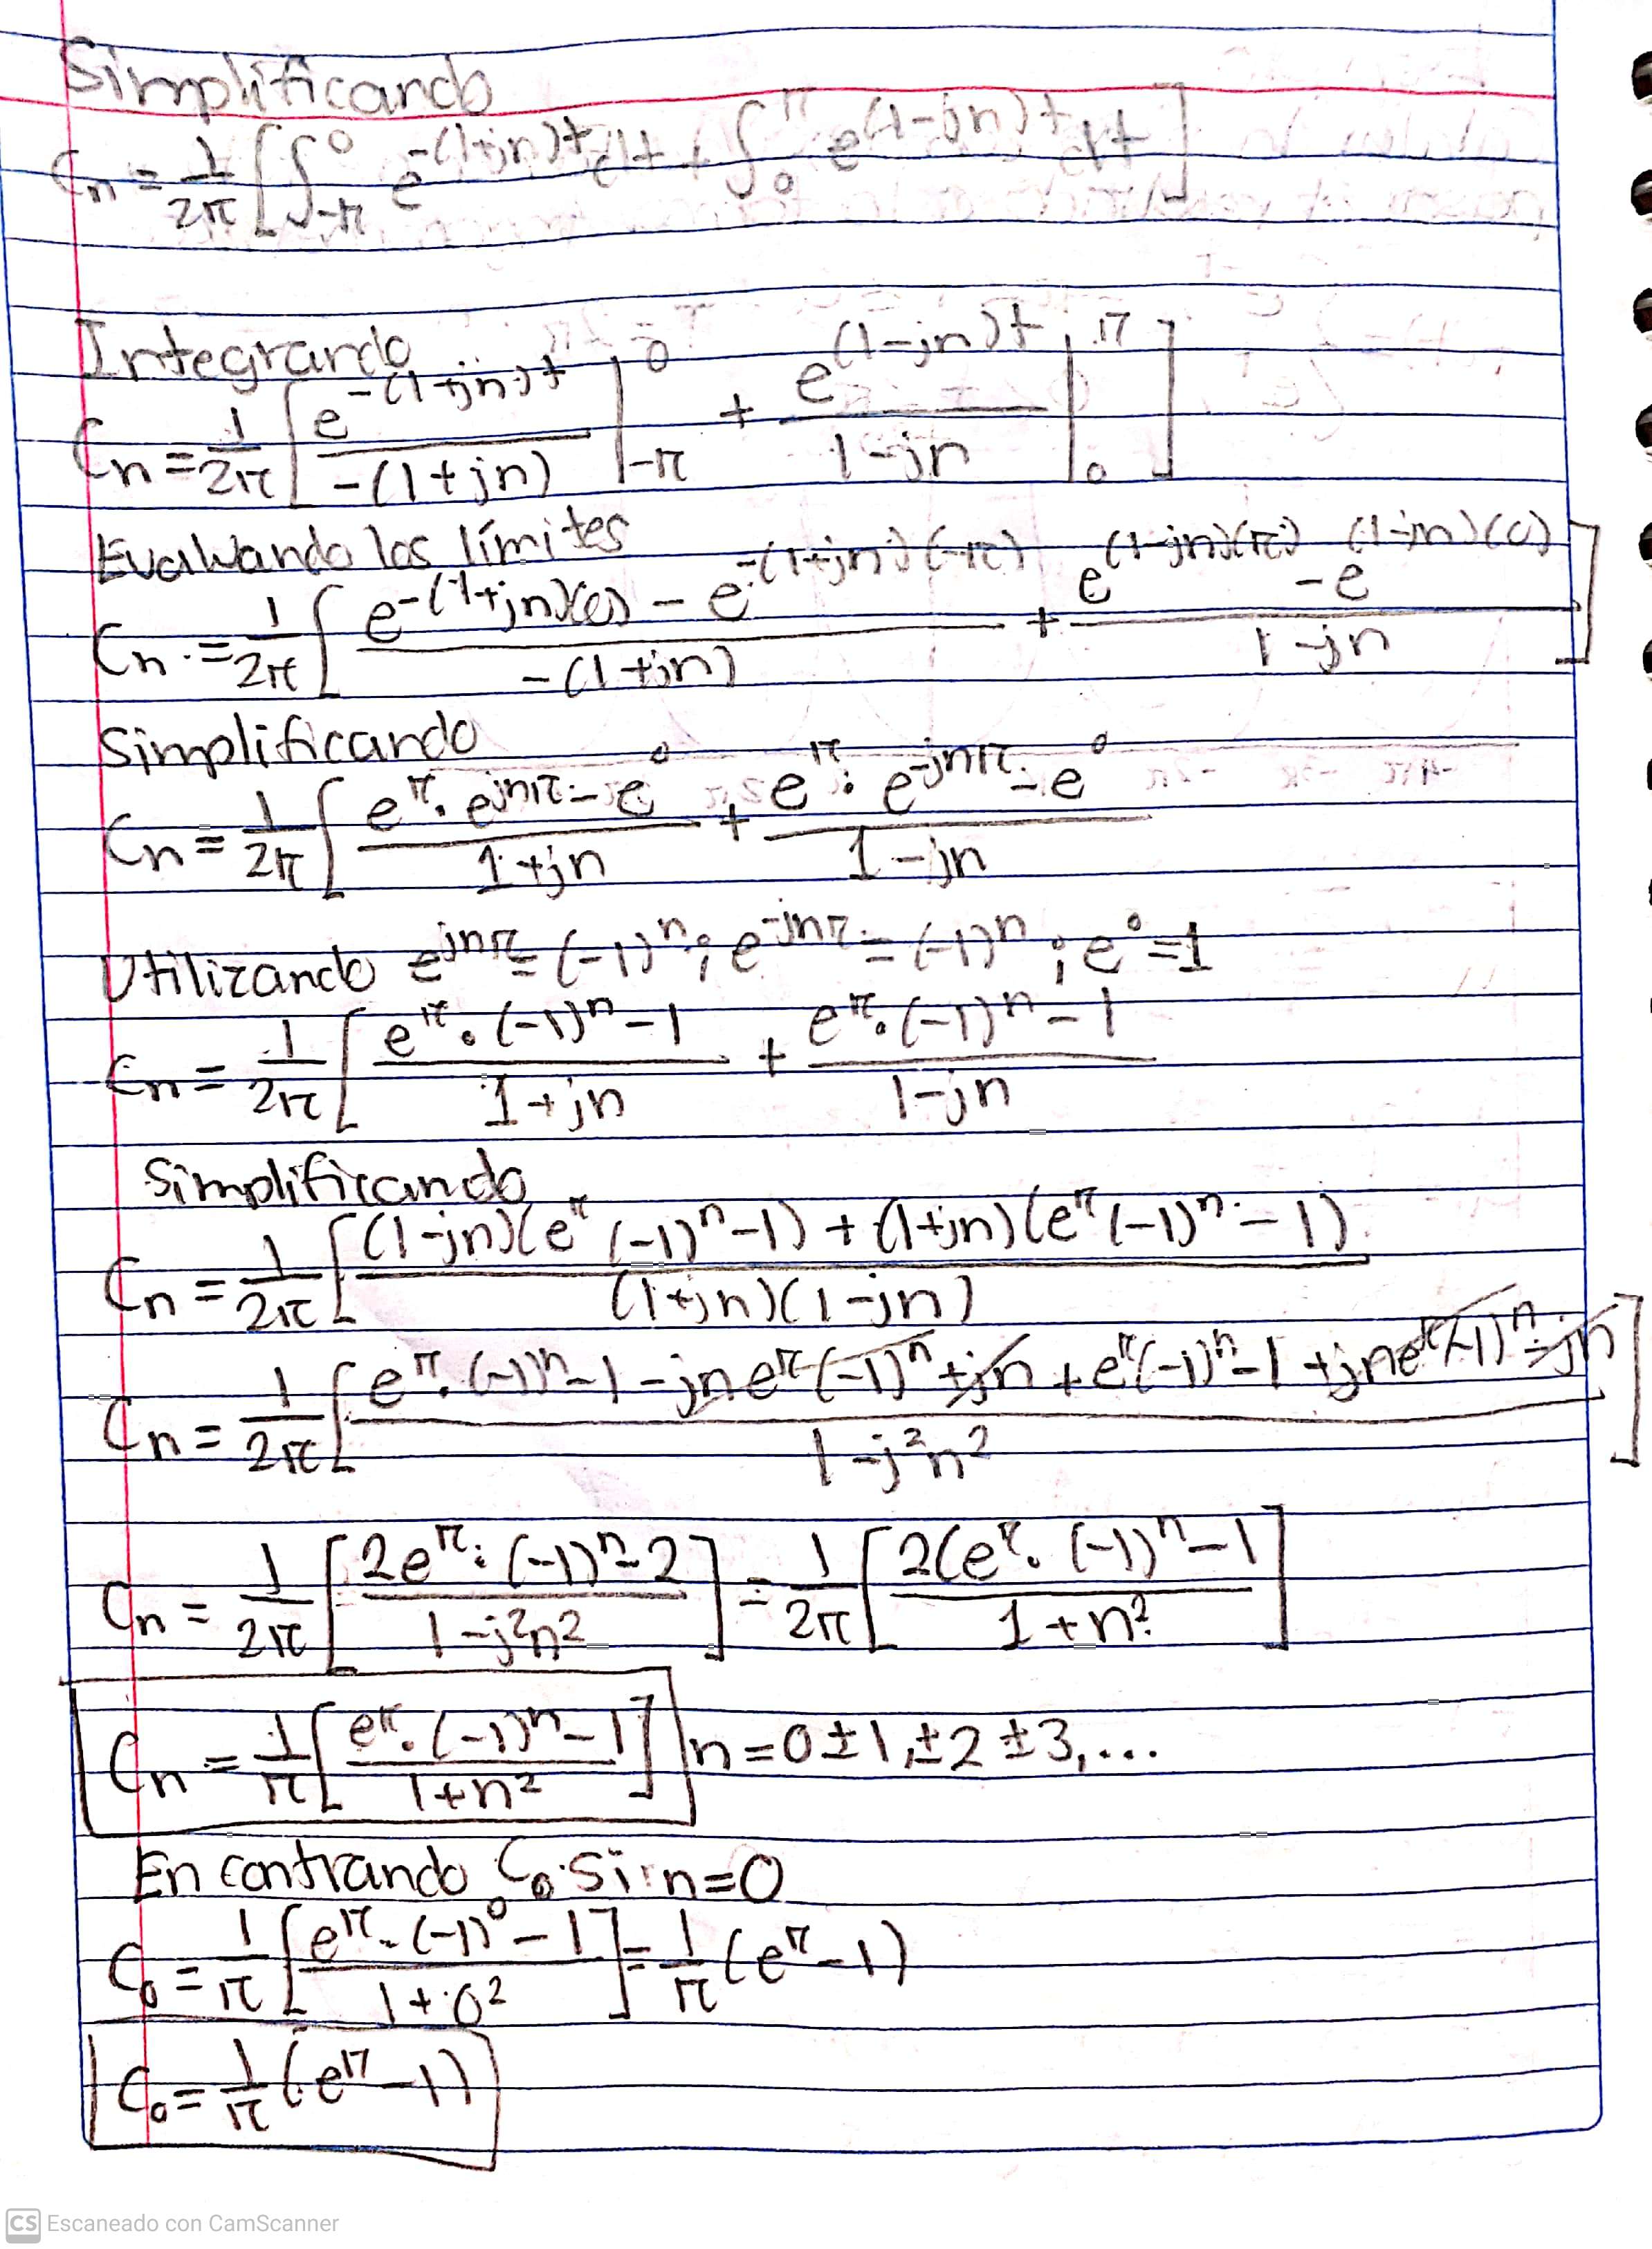 Simplificando
Cn = 1/2π [∫_-π^0 e^-(1+jn)t dt + ∫_0^π e^(1-jn)t dt]
Integrando
Cn = 1/2π [e^-(1+jn)t / -(1+jn) |_-π^0 + e^(1-jn)t / 1-jn |_0^π]
Evaluando los límites
Cn = 1/2π [e^-(1+jn)(0) - e^-(1+jn)(-π) / -(1+jn) + e^(1-jn)(π) - e^(1-jn)(0) / 1-jn]
Simplificando
Cn = 1/2π [e^π · e^jnπ - e^0 / 1+jn + e^π · e^-jnπ - e^0 / 1-jn
Utilizando e^jnπ = (-1)^n ; e^-jnπ = (-1)^n ; e^0 = 1
Cn = 1/2π [e^π · (-1)^n - 1 / 1+jn + e^π · (-1)^n - 1 / 1-jn
Simplificando
Cn = 1/2π [(1-jn)(e^π (-1)^n - 1) + (1+jn)(e^π (-1)^n - 1) / (1+jn)(1-jn)
Cn = 1/2π [e^π · (-1)^n - 1 - jne^π(-1)^n + jn + e^π(-1)^n - 1 + jne^π(-1)^n - jn / 1-j²n²]
Cn = 1/2π [2e^π · (-1)^n - 2 / 1-j²n²] = 1/2π [2(e^π · (-1)^n - 1 / 1+n²]
Cn = 1/π [e^π · (-1)^n - 1 / 1+n²] n=0 ±1, ±2 ±3, ...
Encontrando C₀ si n=0
C₀ = 1/π [e^π · (-1)^0 - 1 / 1+0²] = 1/π (e^π - 1)
C₀ = 1/π (e^π - 1)
CS Escaneado con CamScanner